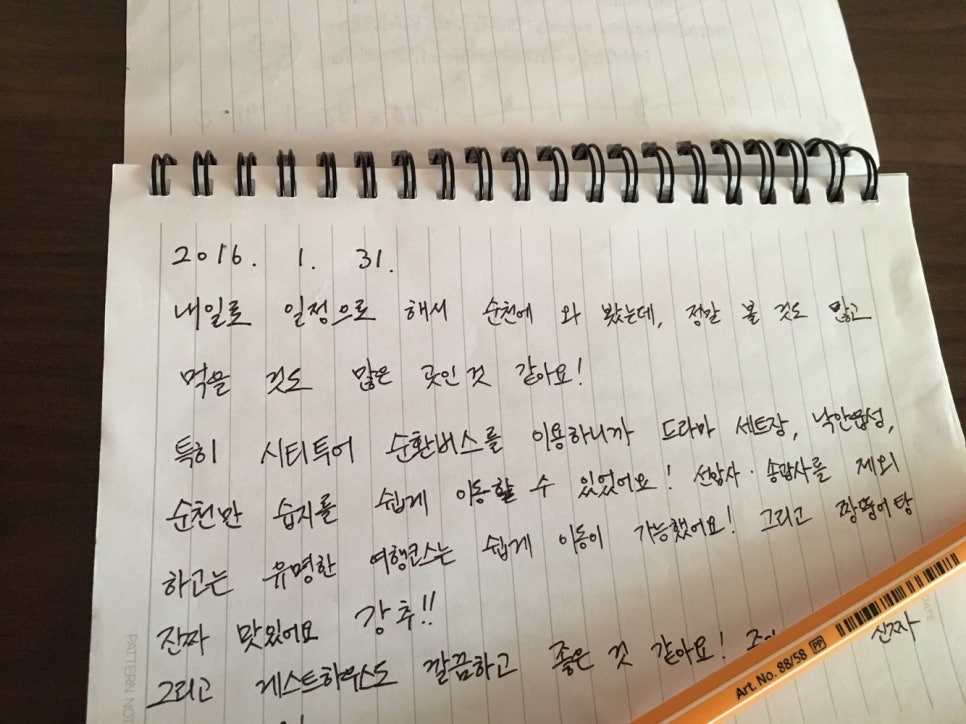 2016. 1. 31.
내일로 일정으로 해서 순천에 와 봤는데, 정말 볼 것도 많고
먹을 것도 많은 곳인 것 같아요!
특히 시티투어 순환버스를 이용하니까 드라마 세트장, 낙안읍성,
순천만 습지를 쉽게 이동할 수 있었어요! 선암사·송광사를 제외
하고는 유명한 여행코스는 쉽게 이동이 가능했어요! 그리고 짱뚱어탕
진짜 맛있어요 강추!!
그리고 게스트하우스도 깔끔하고 좋은 것 같아요!
PATTERN NOT
Art. No. 88/58 PP
DATE